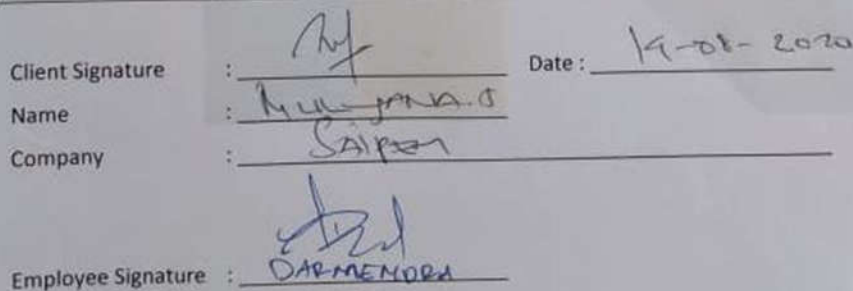 Client Signature : Date : 19-08-2020
Name : MULJANA.S
Company : SAIPEM
Employee Signature : DARMENDRA